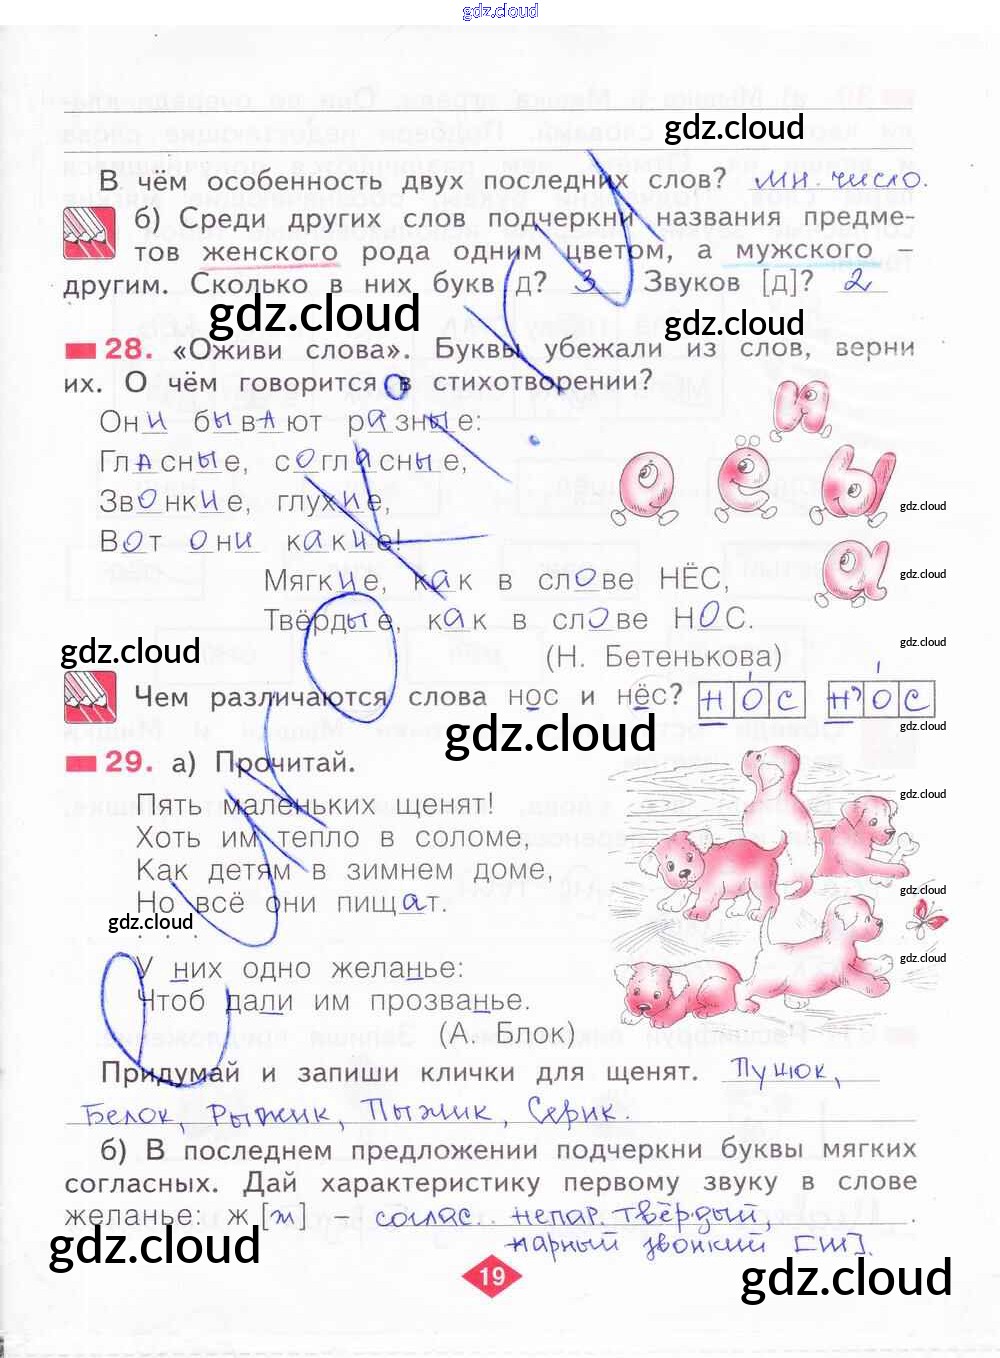 gdz.cloud
gdz.cloud
В чём особенность двух последних слов? мн. число.
б) Среди других слов подчеркни названия предме-
тов женского рода одним цветом, а мужского –
другим. Сколько в них букв д? 3 Звуков [д]? 2
gdz.cloud
gdz.cloud
28. «Оживи слова». Буквы убежали из слов, верни
их. О чём говорится в стихотворении?
Они бывают разные:
Гласные, согласные,
Звонкие, глухие,
Вот они какие!
Мягкие, как в слове НЁС,
Твёрдые, как в слове НОС.
(Н. Бетенькова)
и
о е ы
а
gdz.cloud
gdz.cloud
gdz.cloud
gdz.cloud
Чем различаются слова нос и нёс? н о с н' о с
gdz.cloud
gdz.cloud
29. а) Прочитай.
Пять маленьких щенят!
Хоть им тепло в соломе,
Как детям в зимнем доме,
Но всё они пищат.
gdz.cloud
. . . .
У них одно желанье:
Чтоб дали им прозванье.
(А. Блок)
gdz.cloud
gdz.cloud
gdz.cloud
gdz.cloud
Придумай и запиши клички для щенят. Пушок,
Белок, Рыжик, Пыжик, Серик.
б) В последнем предложении подчеркни буквы мягких
согласных. Дай характеристику первому звуку в слове
желанье: ж [ж] – соглас. непар. твёрдый,
парный звонкий [ш].
gdz.cloud
gdz.cloud
19